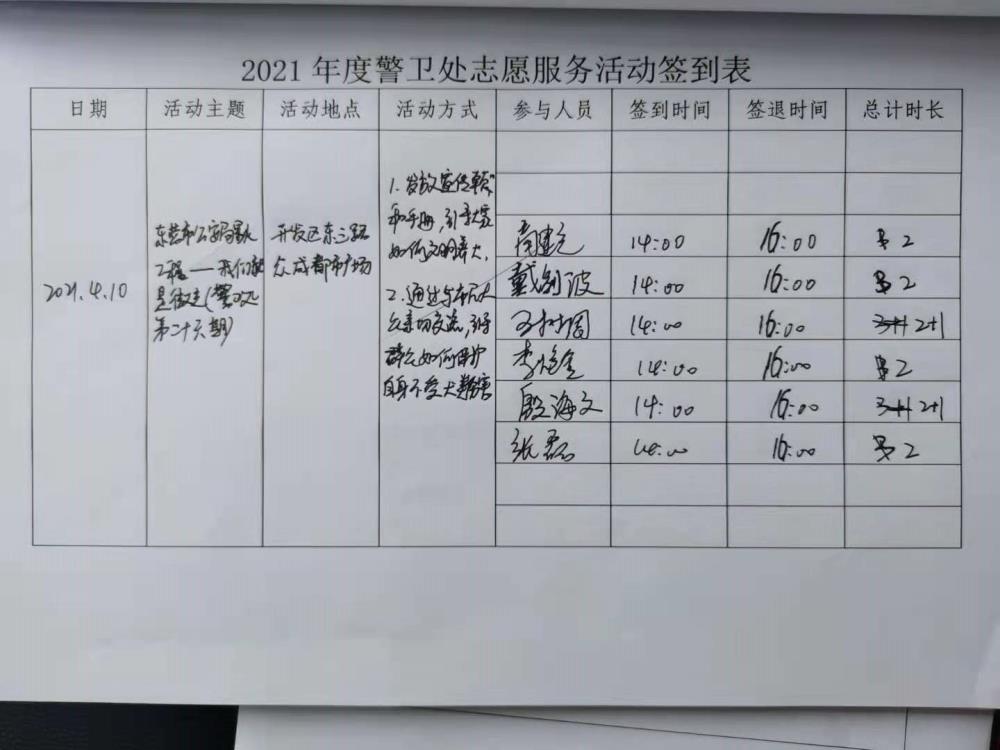 2021年度警卫处志愿服务活动签到表
日期 活动主题 活动地点 活动方式 参与人员 签到时间 签退时间 总计时长
2021.4.10
东营市公安局
工程——我们就
是
第二十六期)
开发区东三路
众成都市广场
1.发放宣传
和手册,引导大家
如何文明养犬,
2.通过与市民大
众亲切交流,引导
群众如何保护
自身不受犬
14:00 16:00 2
戴剑波 14:00 16:00 2
14:00 16:00 3+1 2+1
李 14:00 16:00 2
殷海文 14:00 16:00 3+1 2+1
张磊 14:00 16:00 2